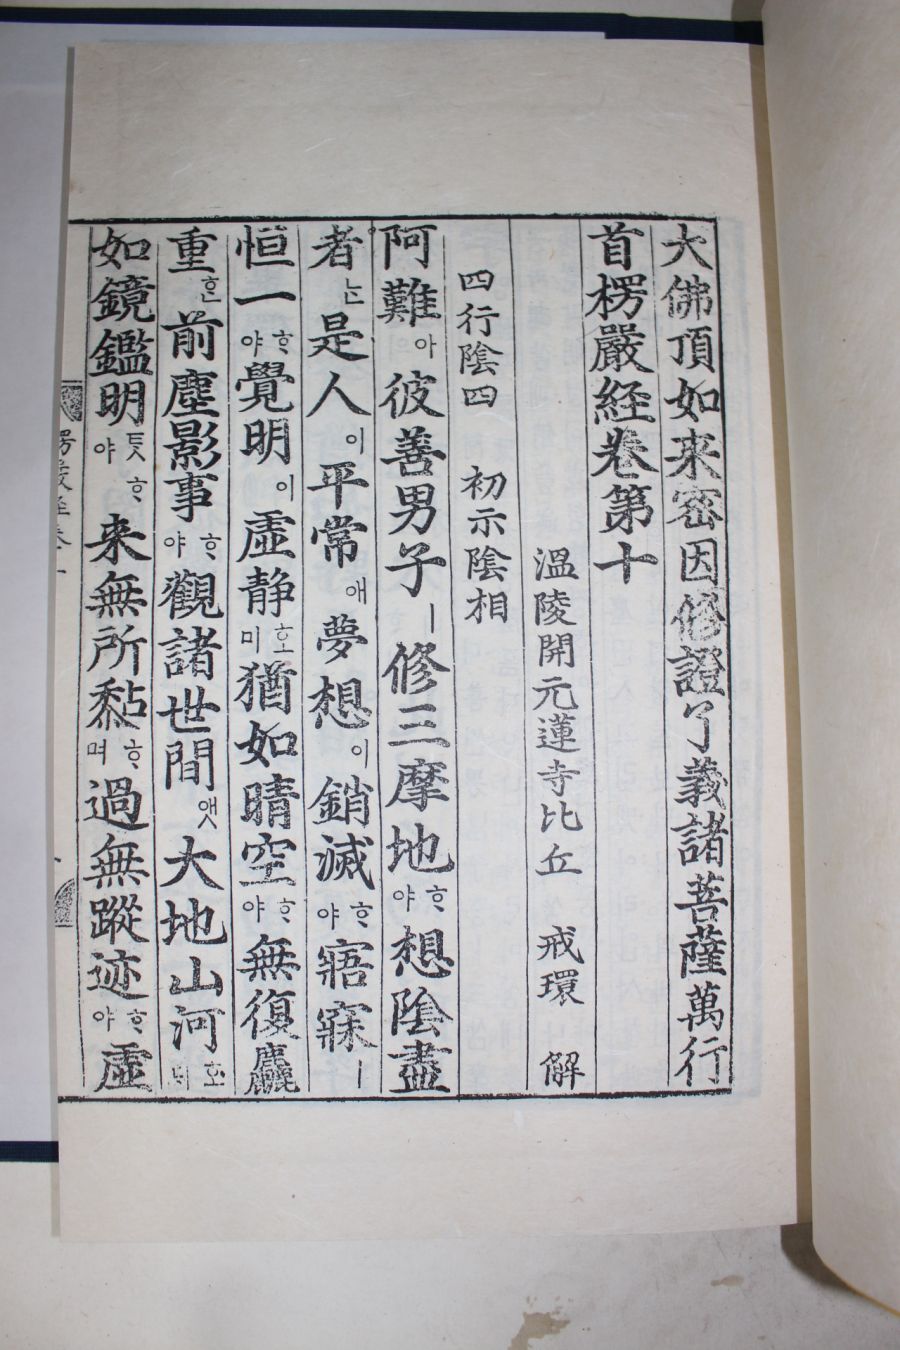 大佛頂如来密因修證了義諸菩薩萬行
首楞嚴経卷第十
溫陵開元蓮寺比丘 戒環 解
四行陰四 初示陰相
阿難아彼善男子ㅣ修三摩地ᄒᆞ야想陰盡
者ᄂᆞᆫ是人이平常애夢想이銷滅ᄒᆞ야寤寐ㅣ
恒一ᄒᆞ야覺明이虛静호미猶如晴空ᄒᆞ야無復麤
重ᄒᆞᆫ前塵影事ᄒᆞ야觀諸世間앳大地山河호ᄃᆡ
如鏡鑑明ᄐᆞᆺᄒᆞ야来無所黏ᄒᆞ며過無蹤迹ᄒᆞ야虛